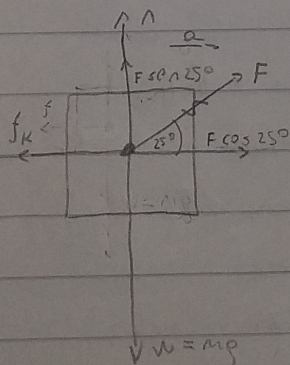 n
a
F sen 25°
F
fk
25°
F cos 25°
W = mg